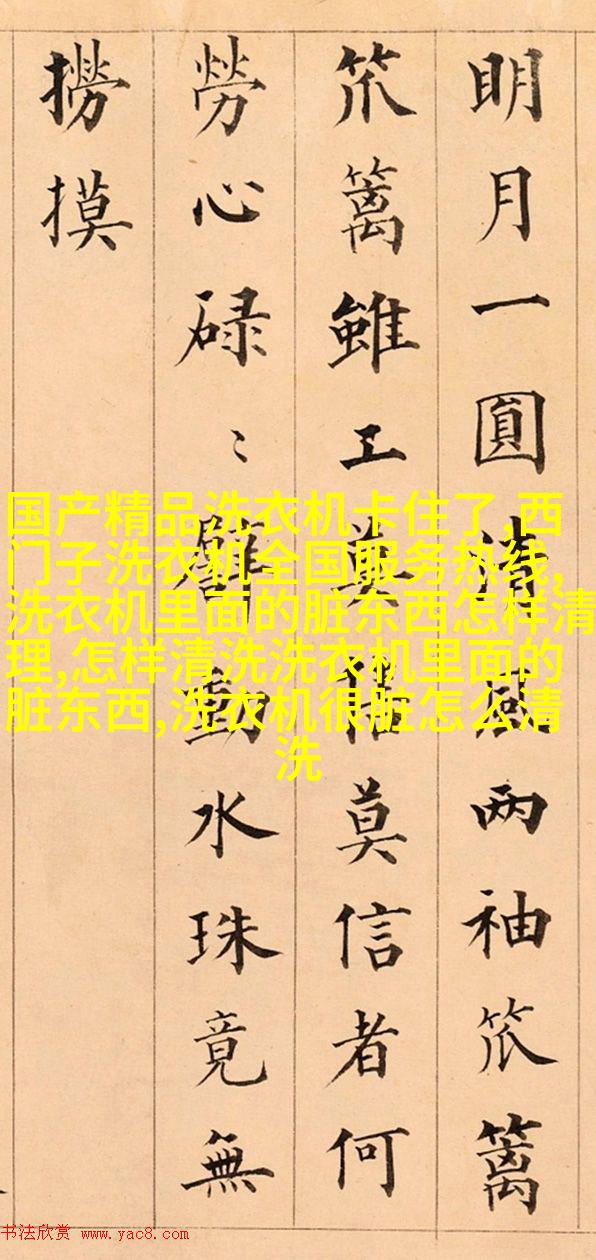 明月一圓清風两袖笊篱
笊篱雖工莫莫信者何
勞心碌〻動水珠竟無
撈摸
国产精品洗衣机卡住了,西
门子洗衣机全国服务热线,
洗衣机里面的脏东西怎样清
理,怎样清洗洗衣机里面的
脏东西,洗衣机很脏怎么清
洗
书法欣赏 www.yac8.com